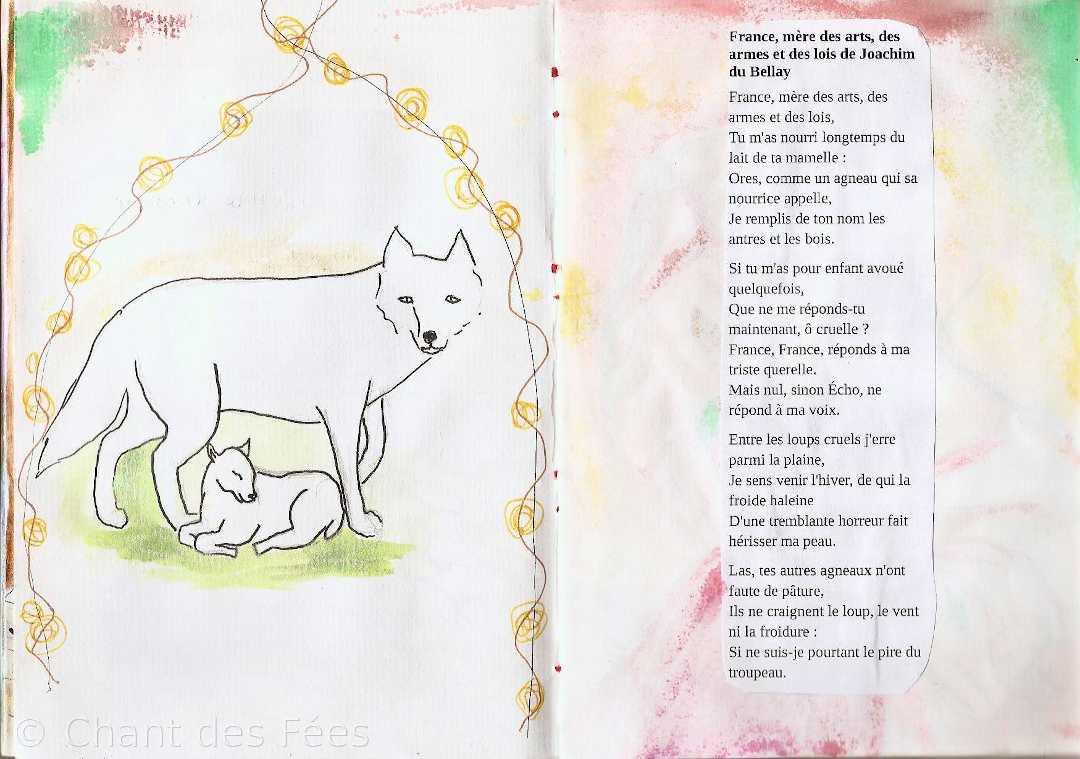 France, mère des arts, des
armes et des lois de Joachim
du Bellay
France, mère des arts, des
armes et des lois,
Tu m'as nourri longtemps du
lait de ta mamelle :
Ores, comme un agneau qui sa
nourrice appelle,
Je remplis de ton nom les
antres et les bois.
Si tu m'as pour enfant avoué
quelquefois,
Que ne me réponds-tu
maintenant, ô cruelle ?
France, France, réponds à ma
triste querelle.
Mais nul, sinon Écho, ne
répond à ma voix.
Entre les loups cruels j'erre
parmi la plaine,
Je sens venir l'hiver, de qui la
froide haleine
D'une tremblante horreur fait
hérisser ma peau.
Las, tes autres agneaux n'ont
faute de pâture,
Ils ne craignent le loup, le vent
ni la froidure :
Si ne suis-je pourtant le pire du
troupeau.
© Chant des Fées